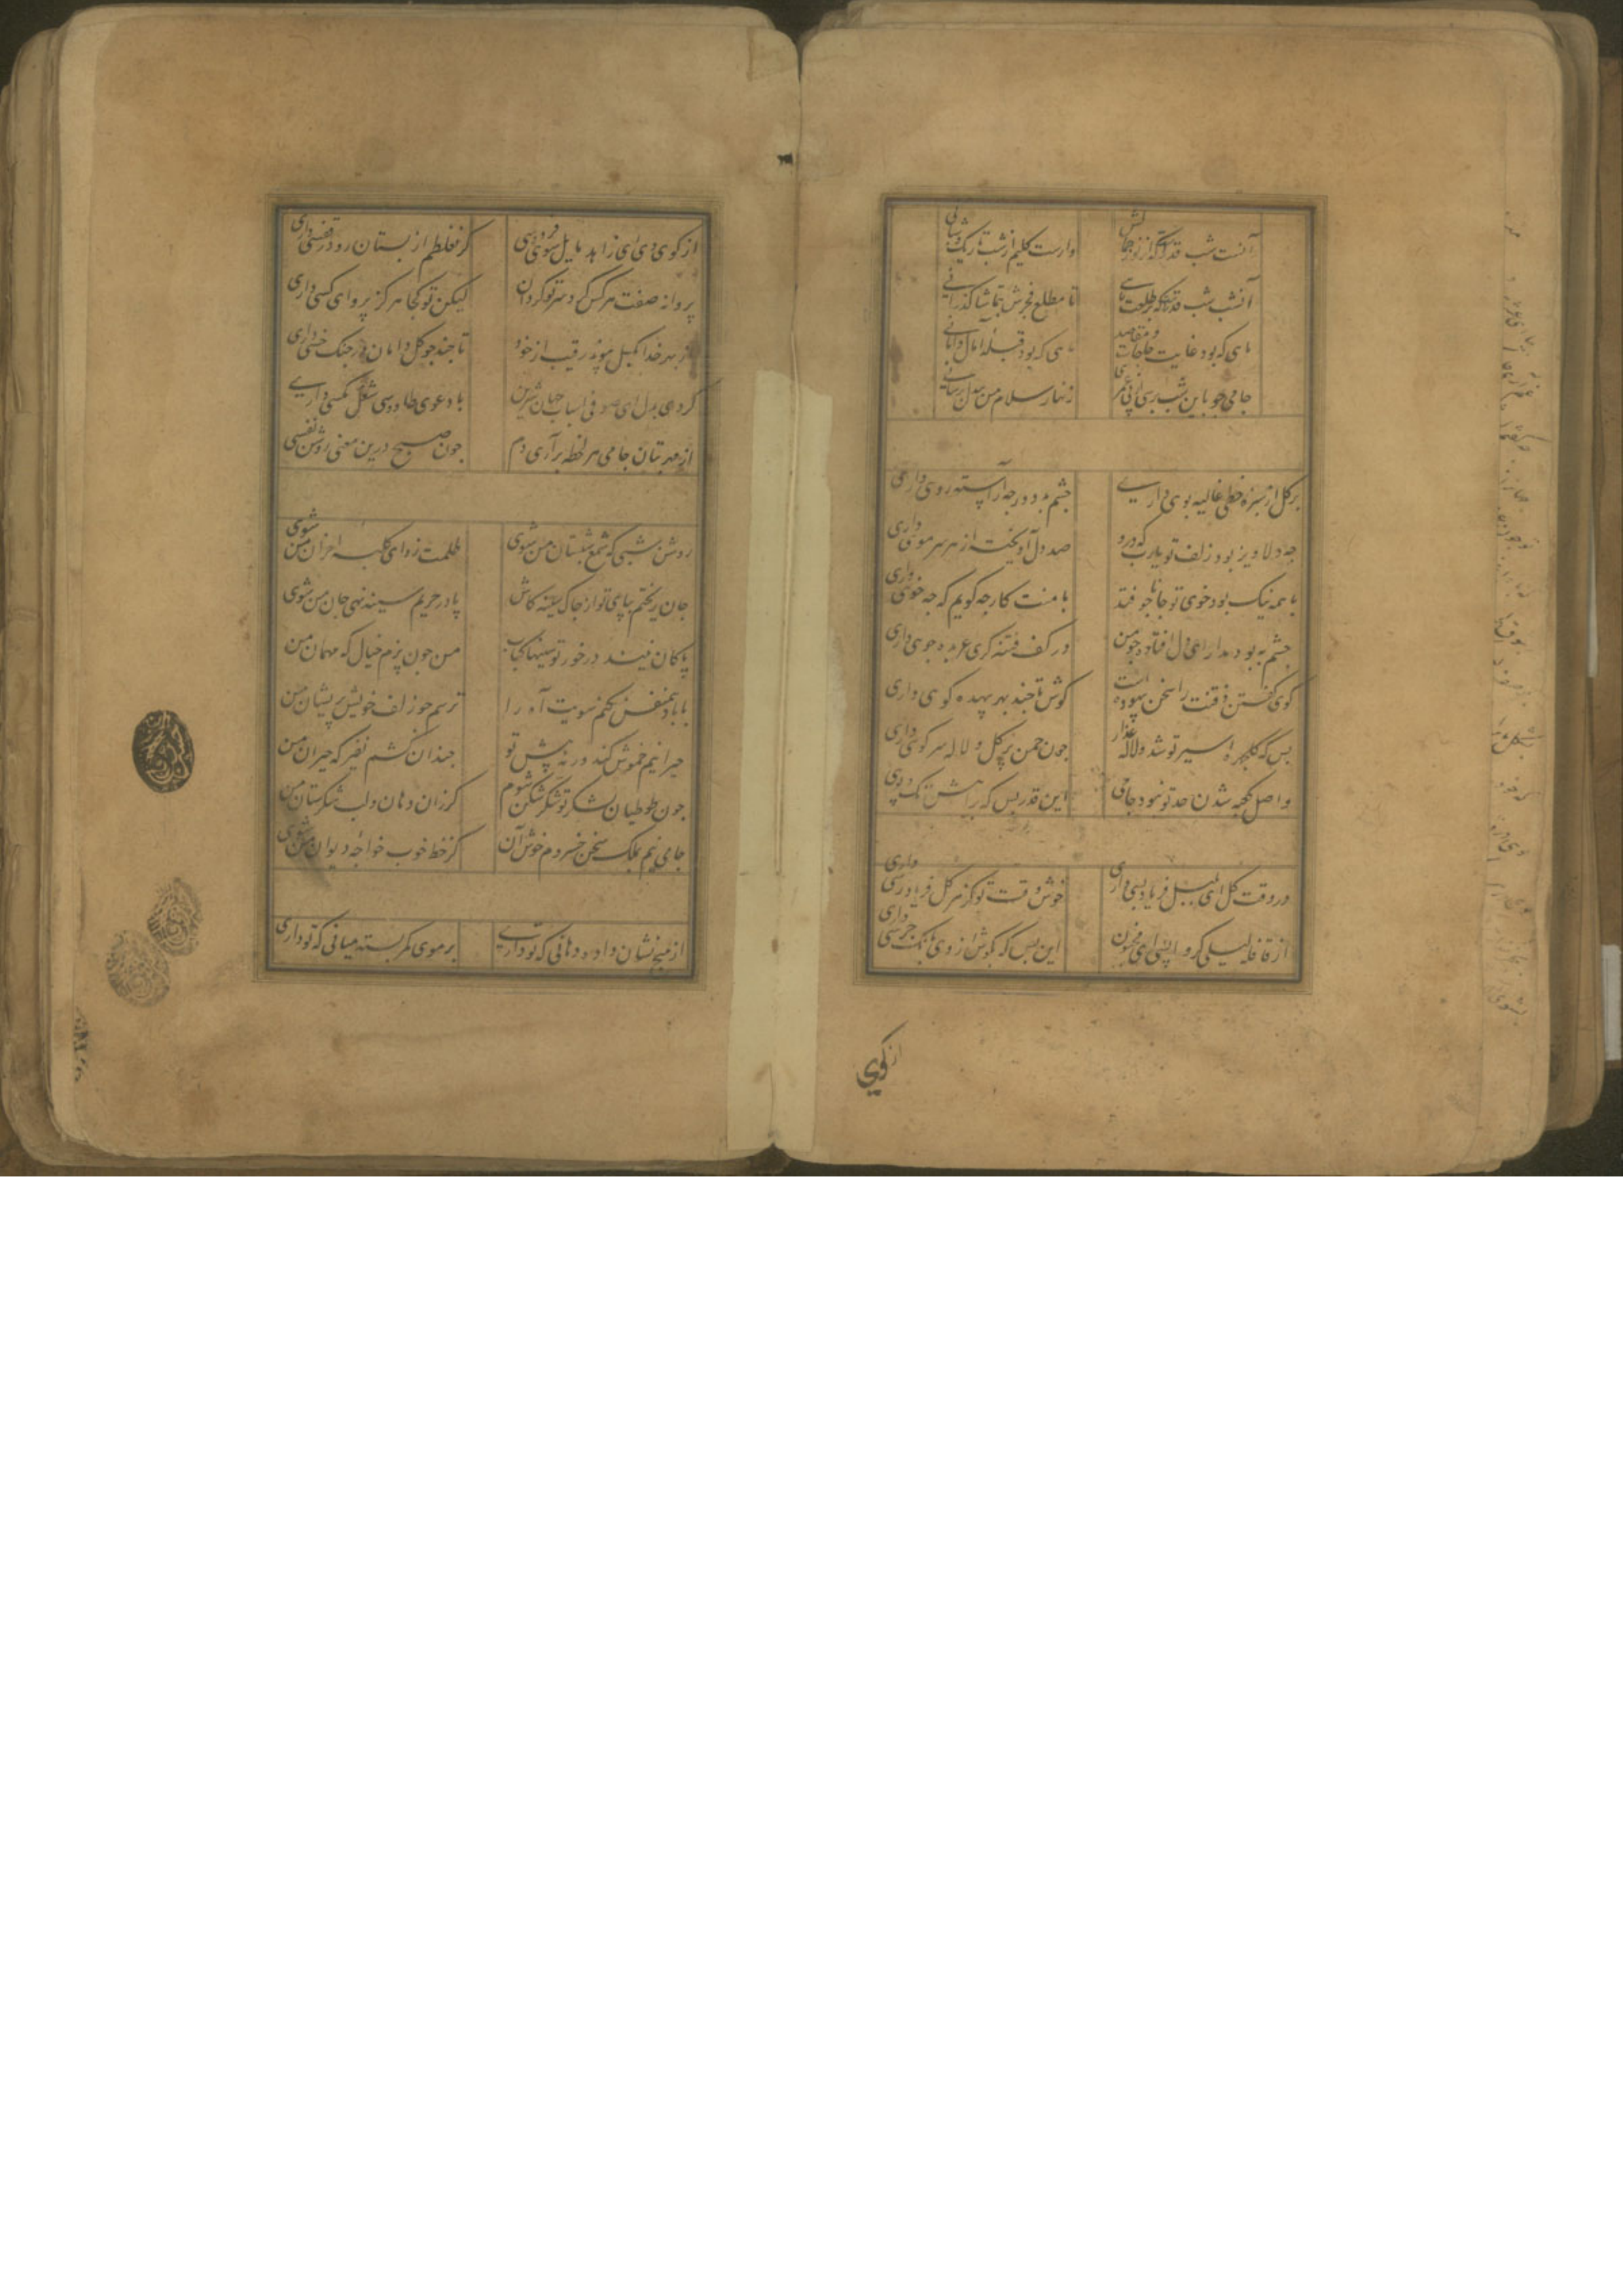 آنست شب قدر که از نور جمالش
وارست کلیم از شب تاریک
آنست شب قدر که بر طلعت ماهی
تا مطلع فجرش بتماشا گذرانی
ماهی که بود غایت حاجات و مقاصد
ماهی که بود قبله آمال و امانی
جامی چو باین شب برسی از پی عمری
زنهار سلام من بیدل برسانی
بر گل از سبزه خطی غالیه بوی داری
چشم بد دور چه آراسته روی داری
چه دلاویز بود زلف تو یارب که درو
صد دل آویخته از هر سر موی داری
با همه نیک بود خوی تو جانا چو فتد
با منت کار چه گویم که چه خوی داری
چشم به بود مدار ای دل افتاده چو من
در کف فتنه گری عربده جوی داری
گوی گفتن رقیبت را سخن بیهوده است
گوش تا چند بهر بیهده گوی داری
بس که گلچهره اسیر تو شد و لاله عذار
چون چمن پر گل و لاله سر کوی داری
واصل کعبه شدن حد تو نبود جامی
این قدر بس که براهش تک و پوی داری
در وقت گل ای بلبل فریاد بسی داری
خوش وقت تو کز هر گل فریادرسی داری
از قافله لیلی گر واپسی ای مجنون
این بس که بگوش از وی بانگ جرسی داری
از کوی
از کوی وی ای زاهد مایل سوی فردوسی
کز غلطم از بستان رو در قفسی داری
پروانه صفت هر کس گرد سر تو گردان
لیکن تو کجا هرگز پروای کسی داری
از بهر خدا بگسل پیوند رقیب از خود
تا چند چو گل دامان در چنگ خسی داری
کردی بدل ای صوفی اسباب جهان شیرین
با دعوی طاووسی شغل مگسی داری
از مهر بتان جامی هر لحظه برآری دم
چون صبح درین معنی روشن نفسی
روشن شبی که شمع شبستان من شوی
ظلمت زدای کلبه احزان من شوی
جان ریختم بپای تو از چاک سینه کاش
پا در حریم سینه نهی جان من شوی
پاکان نیند در خور تو سینها کباب
من چون پزم خیال که مهمان من
با باد همنفس نکنم سویت آه را
ترسم چو زلف خویش پریشان من
حیرانیم خموش کند ورنه پیش تو
چندان کشم نفیر که حیران من
چون طوطیان بشکر تو شکرشکن شوم
گر زان دهان و لب شکرستان من
جامی نیم بملک سخن خسروم خوش آن
کز خط خوب خواجه دیوان من شوی
از هیچ نشان داده دهانی که تو داری
بر موی کمر بسته میانی که تو داری